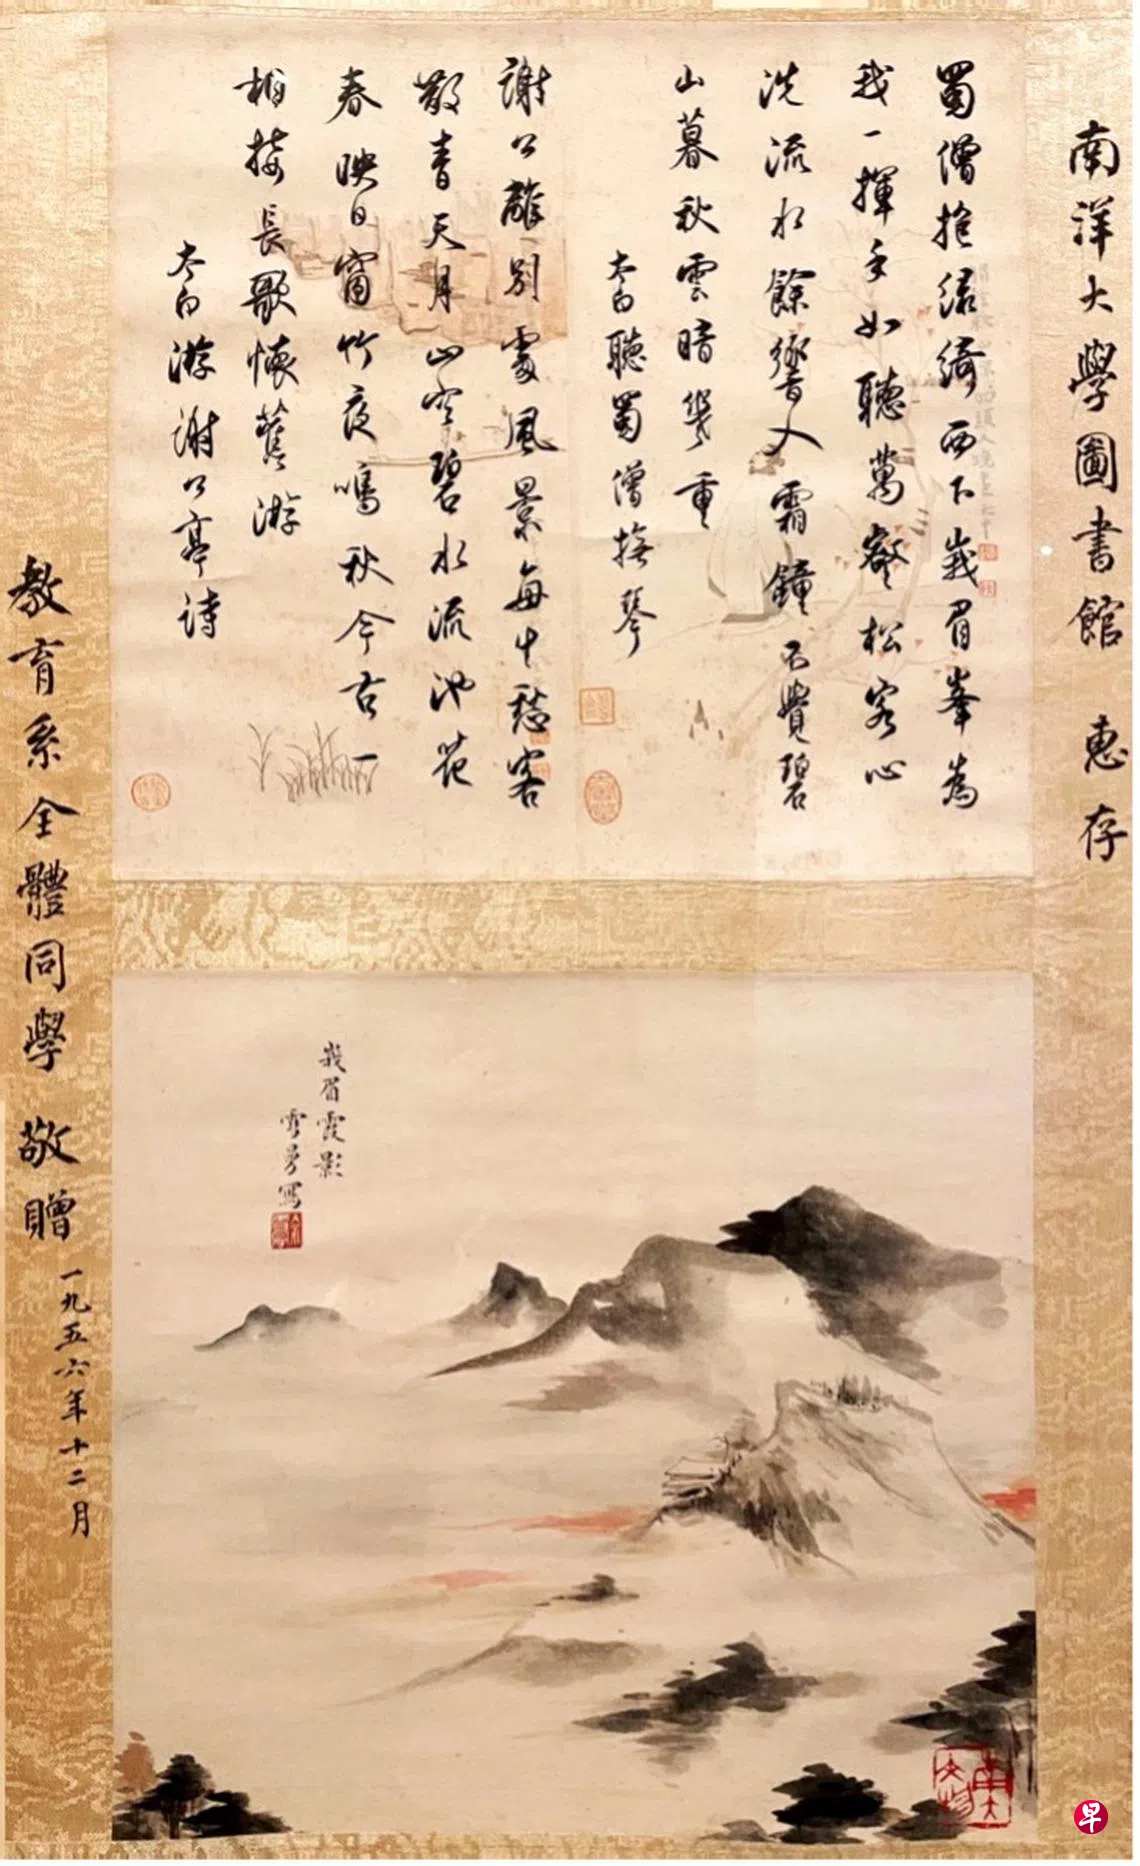 南洋大學圖書館 惠存
蜀僧抱綠綺西下峨眉峯為
我一揮手如聽萬壑松客心
洗流水餘響入霜鐘不覺碧
山暮秋雲暗幾重
太白聽蜀僧撫琴
謝公離別處風景每生愁客
散青天月山空碧水流池花
春映日窗竹夜鳴秋今古一
相接長歌懷舊游
太白游謝公亭詩
峨眉霞影
教育系全體同學 敬贈
一九五六年十二月
早